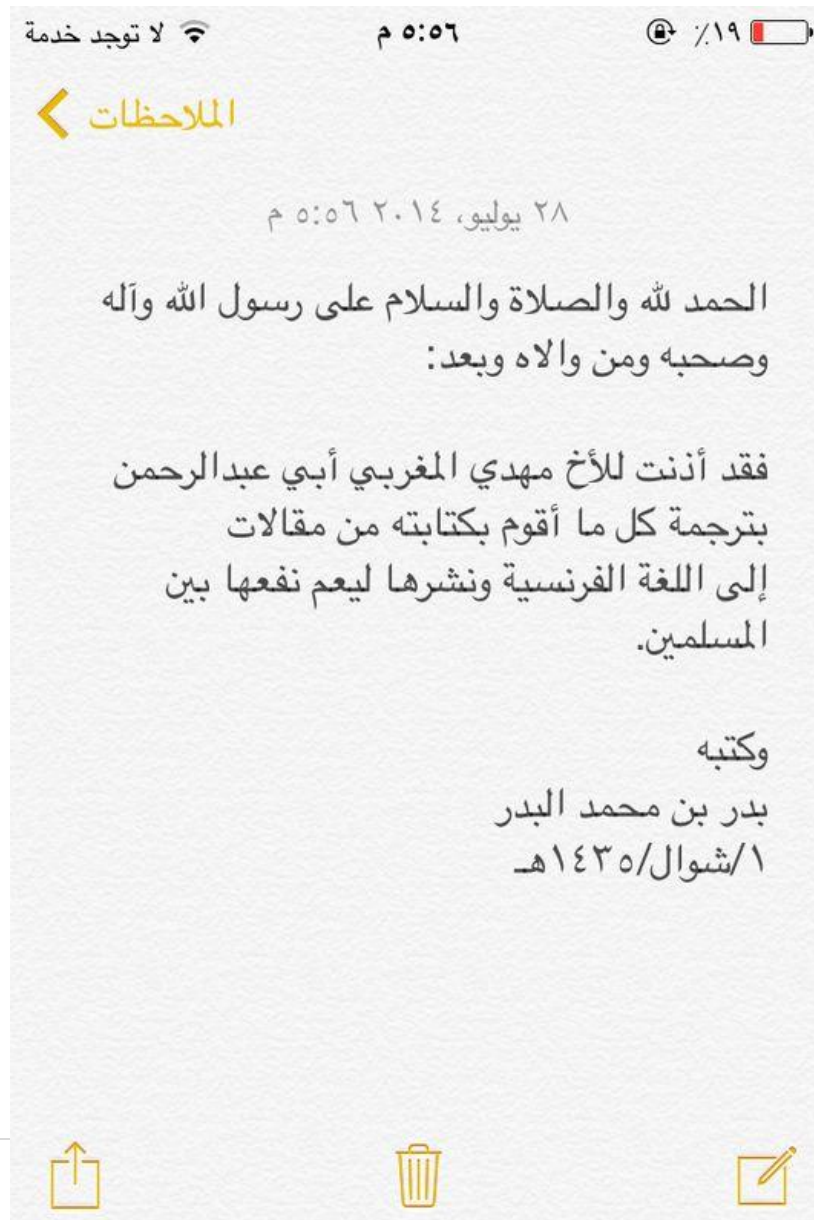 لا توجد خدمة ٥:٥٦ م ١٩٪
الملاحظات
٢٨ يوليو، ٢٠١٤ ٥:٥٦ م
الحمد لله والصلاة والسلام على رسول الله وآله
وصحبه ومن والاه وبعد:
فقد أذنت للأخ مهدي المغربي أبي عبدالرحمن
بترجمة كل ما أقوم بكتابته من مقالات
إلى اللغة الفرنسية ونشرها ليعم نفعها بين
المسلمين.
وكتبه
بدر بن محمد البدر
١/شوال/١٤٣٥هـ